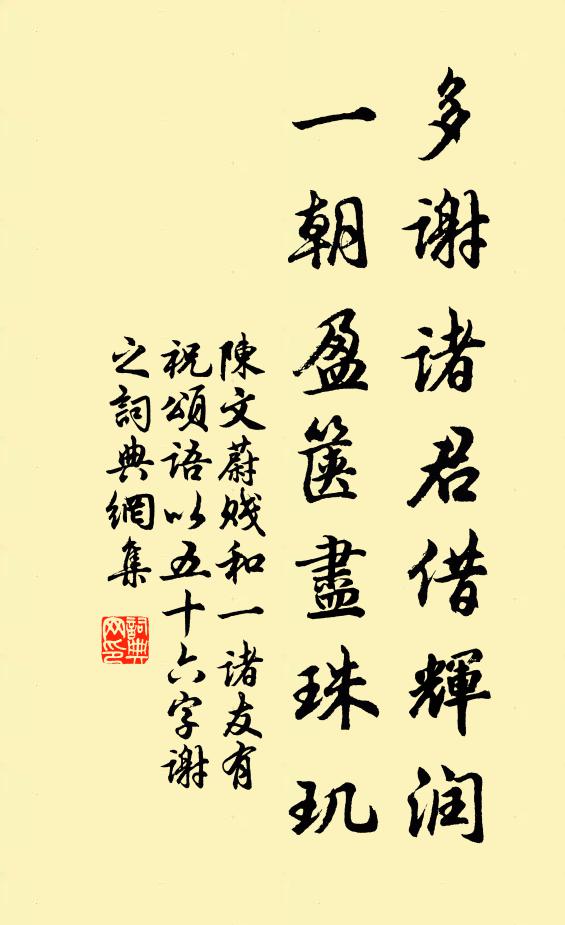 多谢诸君借輝润
一朝盈箧盡珠玑
陳文蔚贱和一诸友有
祝頌语以五十六字谢
之詞典網集
詞典
网印